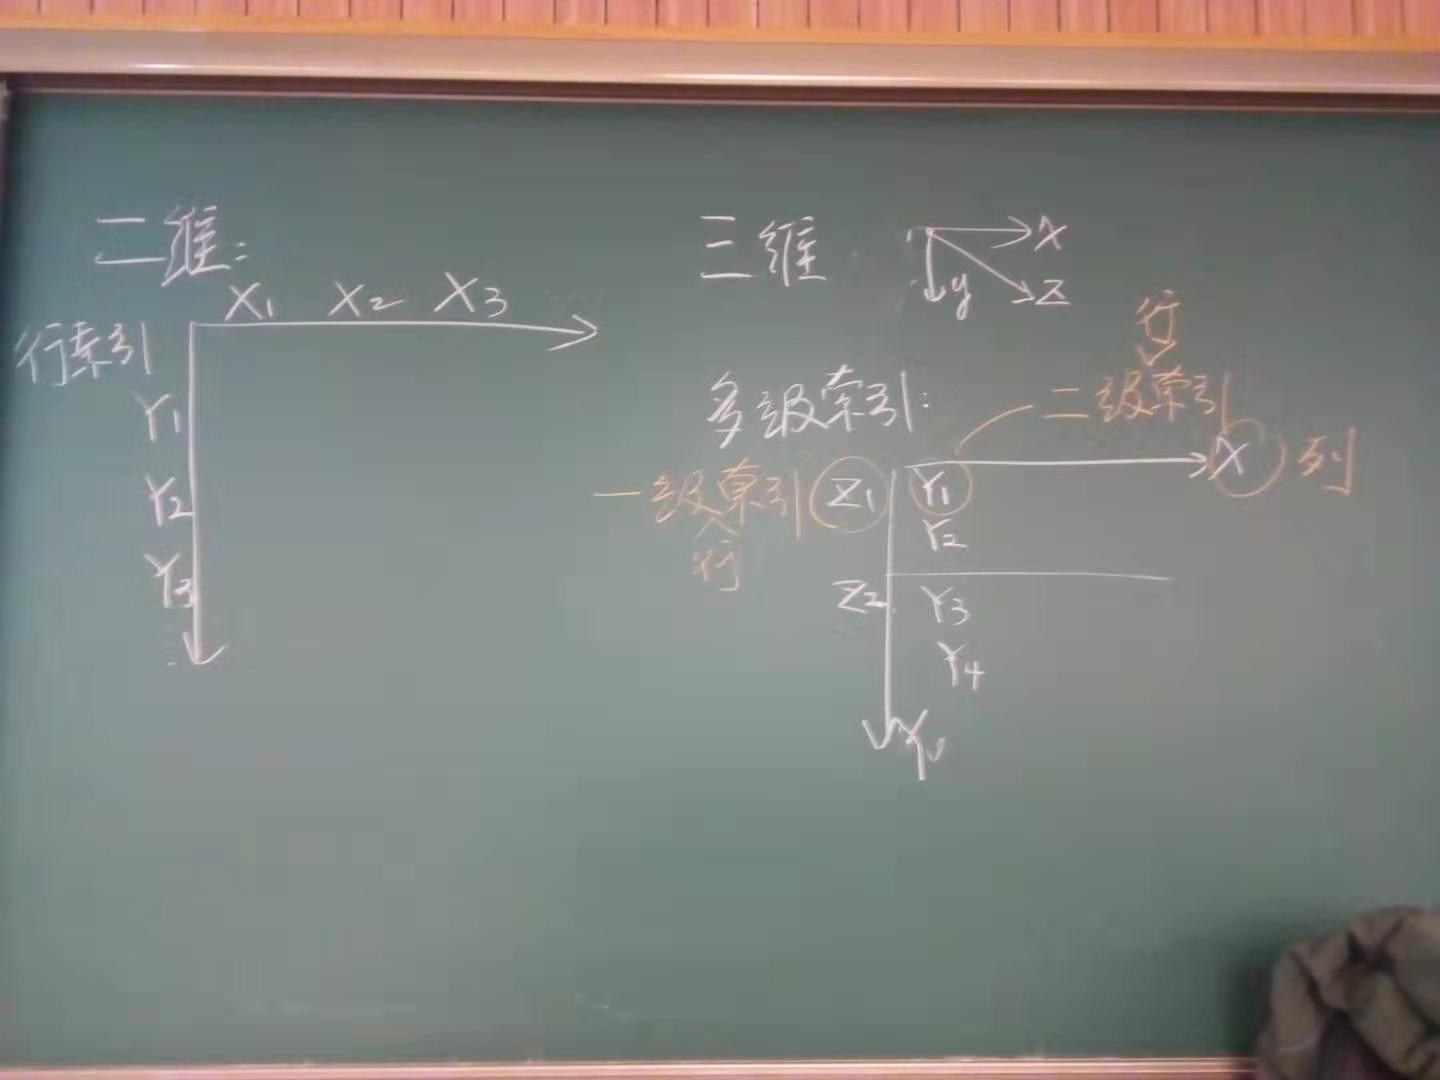 二维:
X1 X2 X3
行索引
Y1
Y2
Y3
三维
X
y
Z
多级索引:
行
二级索引
X 列
一级索引 Z1 Y1
行
Y2
Z2 Y3
Y4